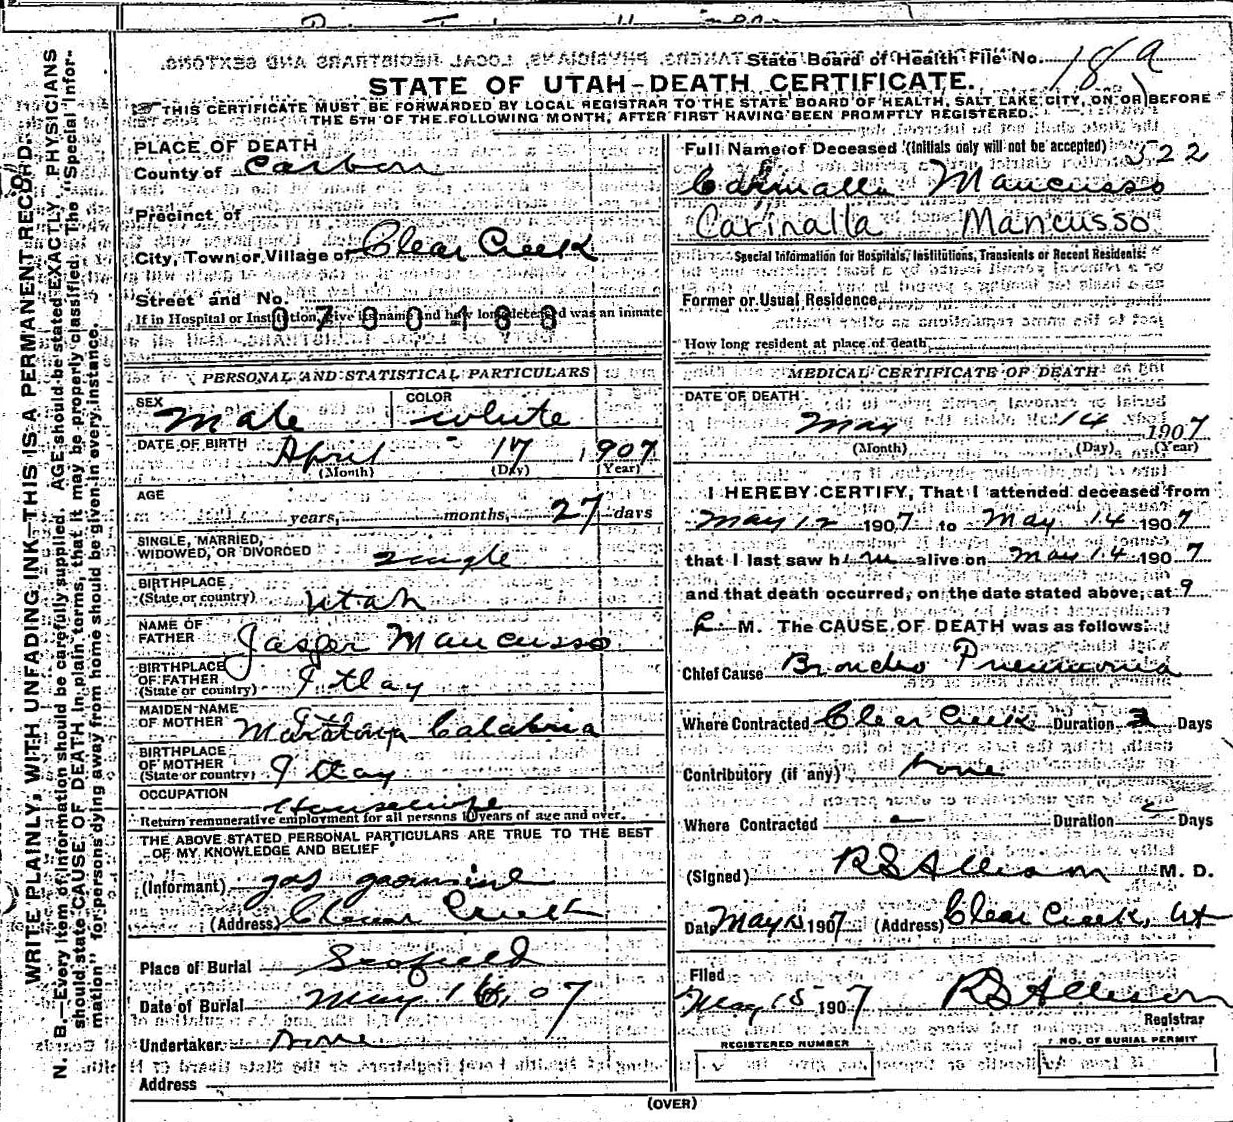 State Board of Health File No. 18 a
STATE OF UTAH-DEATH CERTIFICATE.
THIS CERTIFICATE MUST BE FORWARDED BY LOCAL REGISTRAR TO THE STATE BOARD OF HEALTH, SALT LAKE CITY, ON OR BEFORE
THE 5TH OF THE FOLLOWING MONTH, AFTER FIRST HAVING BEEN PROMPTLY REGISTERED.
WRITE PLAINLY, WITH UNFADING INK—THIS IS A PERMANENT RECORD.
N. B.—Every item of information should be carefully supplied. AGE should be stated EXACTLY, PHYSICIANS
should state CAUSE OF DEATH in plain terms, that it may be properly classified. The "Special Infor-
mation" for persons dying away from home should be given in every instance.
PLACE OF DEATH
County of Carbon
Precinct of
City, Town or Village of Clear Creek
Street and No.
If in Hospital or Institution, give its name and how long deceased was an inmate
0700188
PERSONAL AND STATISTICAL PARTICULARS
SEX Male COLOR White
DATE OF BIRTH April 17 1907
(Month) (Day) (Year)
AGE
years, months, 27 days
SINGLE, MARRIED,
WIDOWED, OR DIVORCED Single
BIRTHPLACE
(State or country) Utah
NAME OF
FATHER Jasper Mancusso
BIRTHPLACE
OF FATHER
(State or country) Itlay
MAIDEN NAME
OF MOTHER Calabria
BIRTHPLACE
OF MOTHER
(State or country) Itlay
OCCUPATION
Housewife
Return remunerative employment for all persons 10 years of age and over.
THE ABOVE STATED PERSONAL PARTICULARS ARE TRUE TO THE BEST
OF MY KNOWLEDGE AND BELIEF
(Informant)
(Address) Clear Creek
Place of Burial Scofield
Date of Burial May 16, 07
Undertaker None
Address
Full Name of Deceased (Initials only will not be accepted) 522
Carinalla Mancusso
Carinalla Mancusso
Special Information for Hospitals, Institutions, Transients or Recent Residents:
Former or Usual Residence
How long resident at place of death
MEDICAL CERTIFICATE OF DEATH
DATE OF DEATH
May 14 1907
(Month) (Day) (Year)
I HEREBY CERTIFY, That I attended deceased from
May 12 1907 to May 14 1907
that I last saw him alive on May 14 1907
and that death occurred, on the date stated above, at 9
P. M. The CAUSE OF DEATH was as follows:
Chief Cause Broncho Pneumonia
Where Contracted Clear Creek Duration 3 Days
Contributory (if any) None
Where Contracted Duration Days
(Signed) RS Allison M. D.
Date May 15 1907 (Address) Clear Creek, Ut
Filed
May 15 1907 RS Allison
Registrar
REGISTERED NUMBER NO. OF BURIAL PERMIT
(OVER)